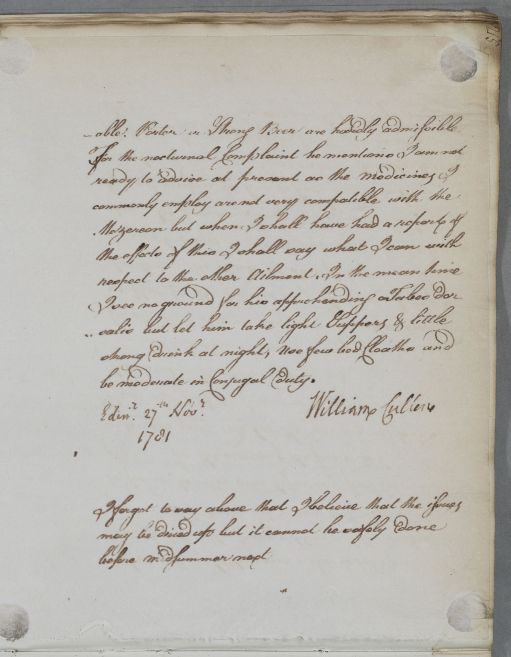 -able. Porter or Strong Beer are hardly admissible
For the nocturnal Complaint he mentions I am not
ready to advise at present as the medicines I
commonly employ are not very compatible with the
Mezereon but when I shall have had a report of
the effects of this I shall say what I can with
respect to the other Ailment. In the mean time
I see no ground for his apprehending a Tabes Dor
-salis but let him take light Suppers & little
strong drink at night, Use few bed Cloaths and
be moderate in Conjugal duty.
Edinr. 27th Novr.
William Cullen
1781
I forgot to say above that I believe that the issues
may be dried up but it cannot be safely done
before midsummer next